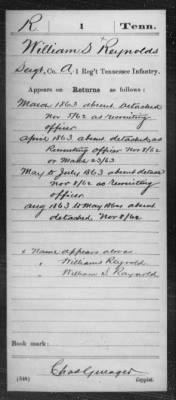 R 1 Tenn.
William S Reynolds
Sergt, Co. A, 1 Reg't Tennessee Infantry.
Appears on
Returns as follows:
March 1863 absent detached
Nov 5/62 as recruiting
officer
April 1863 absent detached as
Recruiting officer Nov 8/62
or March 23/63
May to July 1863 absent detach
Nov 8/62 as recruiting
officer
Aug 1863 to May absent
detached Nov 8/62
Name appears above
" William Reynold
" William S. Raynold
Book mark:
(546)
Copyist.